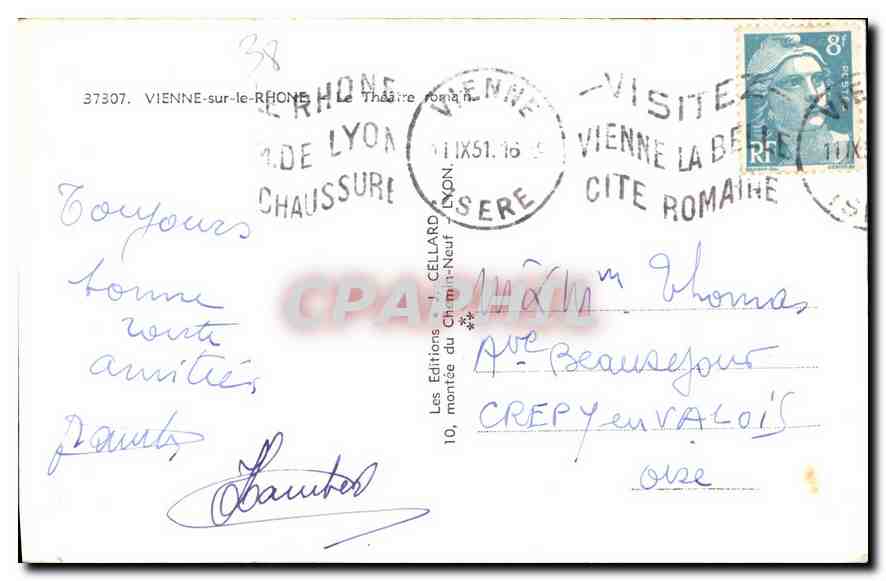 38
37307. VIENNE-sur-le-RHONE Le Théâtre romain.
LE RHONE
DE LYON
CHAUSSURE
VIENNE
11 IX 51. 16
ISERE
VISITEZ
VIENNE LA BELLE
CITE ROMAINE
8f
RF
VIE
11 IX
ISE
Toujours
bonne
route
amitiés
Les Editions J. CELLARD
10, montée du Chemin-Neuf - LYON.
**
CPARHOL
Thomas
Ave Beausejour
CREPY en VALOIS
oise